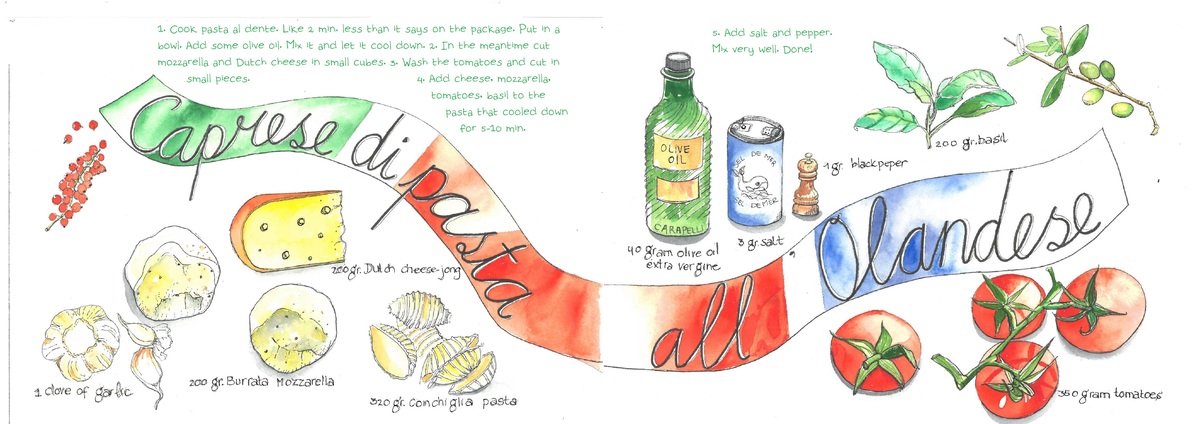 1. Cook pasta al dente. Like 2 min. less than it says on the package. Put in a
bowl. Add some olive oil. Mix it and let it cool down. 2. In the meantime cut
mozzarella and Dutch cheese in small cubes. 3. Wash the tomatoes and cut in
small pieces.
4. Add cheese, mozzarella,
tomatoes, basil to the
pasta that cooled down
for 5-10 min.
5. Add salt and pepper.
Mix very well. Done!
Caprese di pasta all'Olandese
OLIVE
OIL
CARAPELLI
SEL DE MER
SEL DE MER
200 gr. basil
1 gr. blackpeper
40 gram olive oil
extra vergine
3 gr. salt
200 gr. Dutch cheese-jong
1 clove of garlic
200 gr. Burrata Mozzarella
320 gr. Conchiglia pasta
350 gram tomatoes